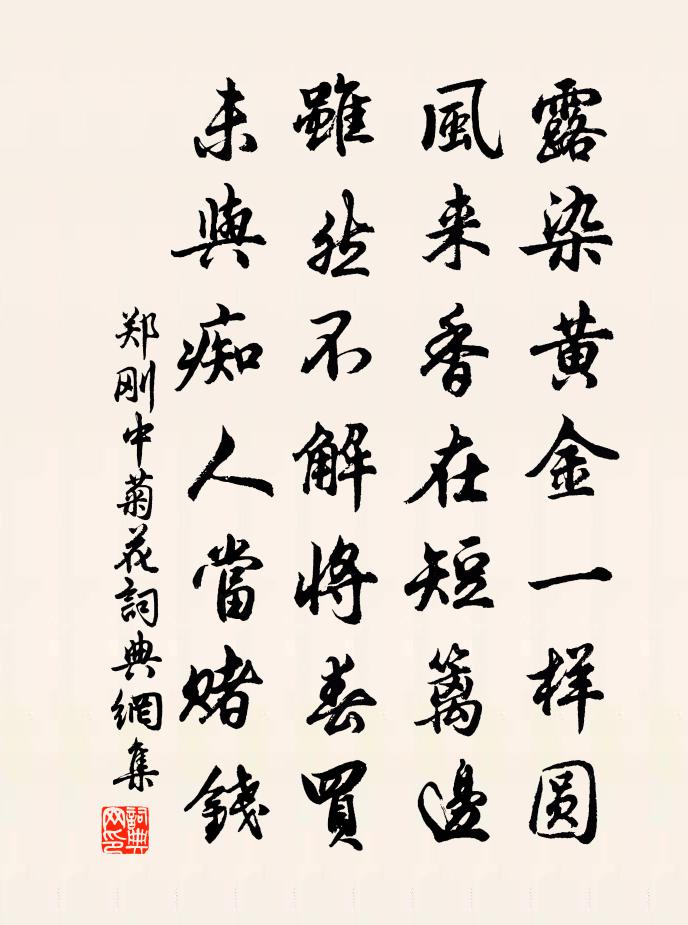 露染黄金一样圆
風来香在短籬邊
雖然不解將春買
未與痴人當赌錢
郑刚中菊花詞典網集
詞典網印